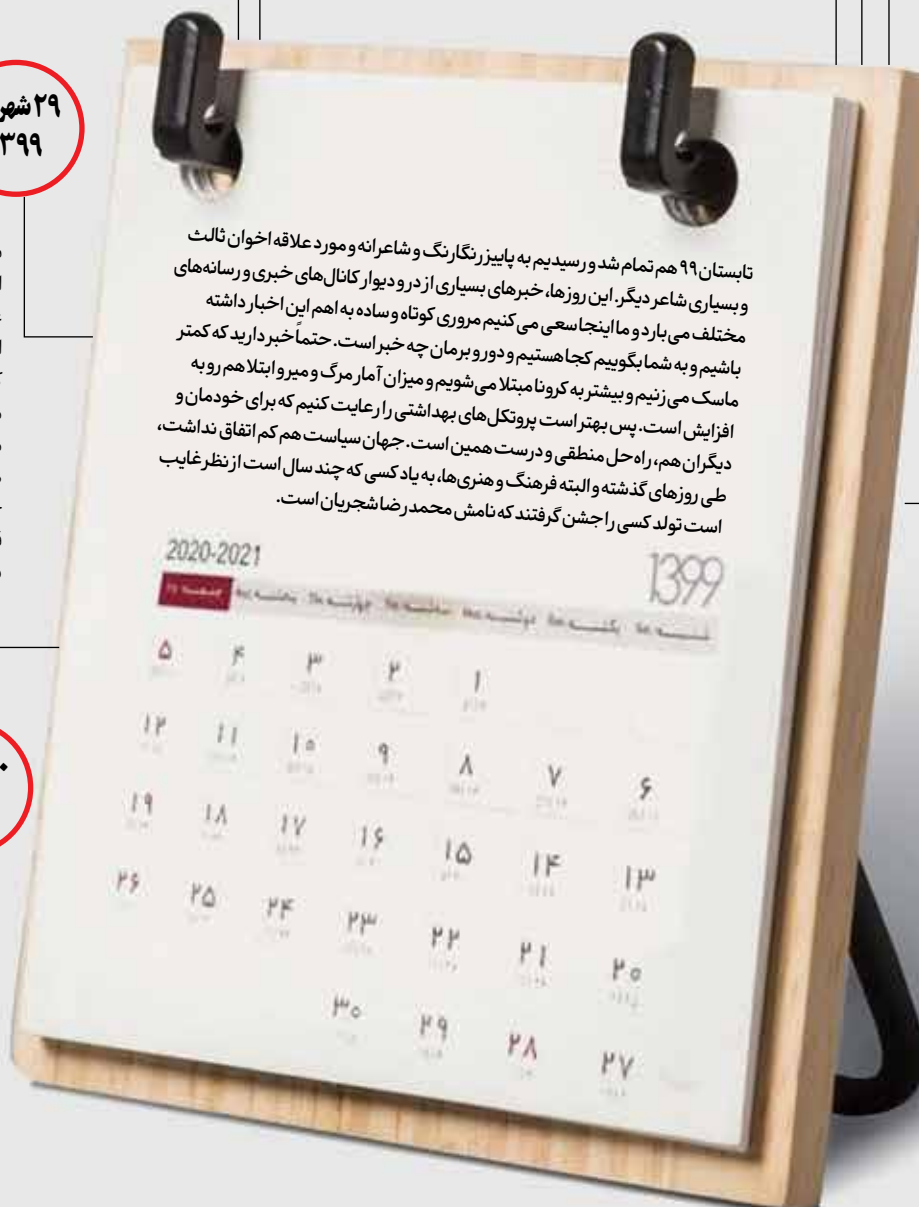 ۲۹ شهر
۳۹۹
تابستان ۹۹ هم تمام شد و رسیدیم به پاییز رنگارنگ و شاعرانه و مورد علاقه اخوان ثالث
و بسیاری شاعر دیگر. این روزها، خبرهای بسیاری از در و دیوار کانال‌های خبری و رسانه‌های
مختلف می‌بارد و ما اینجا سعی می‌کنیم مروری کوتاه و ساده به اهم این اخبار داشته
باشیم و به شما بگوییم کجا هستیم و دور و برمان چه خبر است. حتماً خبر دارید که کمتر
ماسک می‌زنیم و بیشتر به کرونا مبتلا می‌شویم و میزان آمار مرگ و میر و ابتلا هم رو به
افزایش است. پس بهتر است پروتکل‌های بهداشتی را رعایت کنیم که برای خودمان و
دیگران هم، راه حل منطقی و درست همین است. جهان سیاست هم کم اتفاق نداشت،
طی روزهای گذشته و البته فرهنگ و هنری‌ها، به یاد کسی که چند سال است از نظر غایب
است تولد کسی را جشن گرفتند که نامش محمدرضا شجریان است.
1399 2020-2021
شنبه یکشنبه دوشنبه سه‌شنبه چهارشنبه پنجشنبه جمعه
۱ ۲ ۳ ۴ ۵
۶ ۷ ۸ ۹ ۱۰ ۱۱ ۱۲
۱۳ ۱۴ ۱۵ ۱۶ ۱۷ ۱۸ ۱۹
۲۰ ۲۱ ۲۲ ۲۳ ۲۴ ۲۵ ۲۶
۲۷ ۲۸ ۲۹ ۳۰